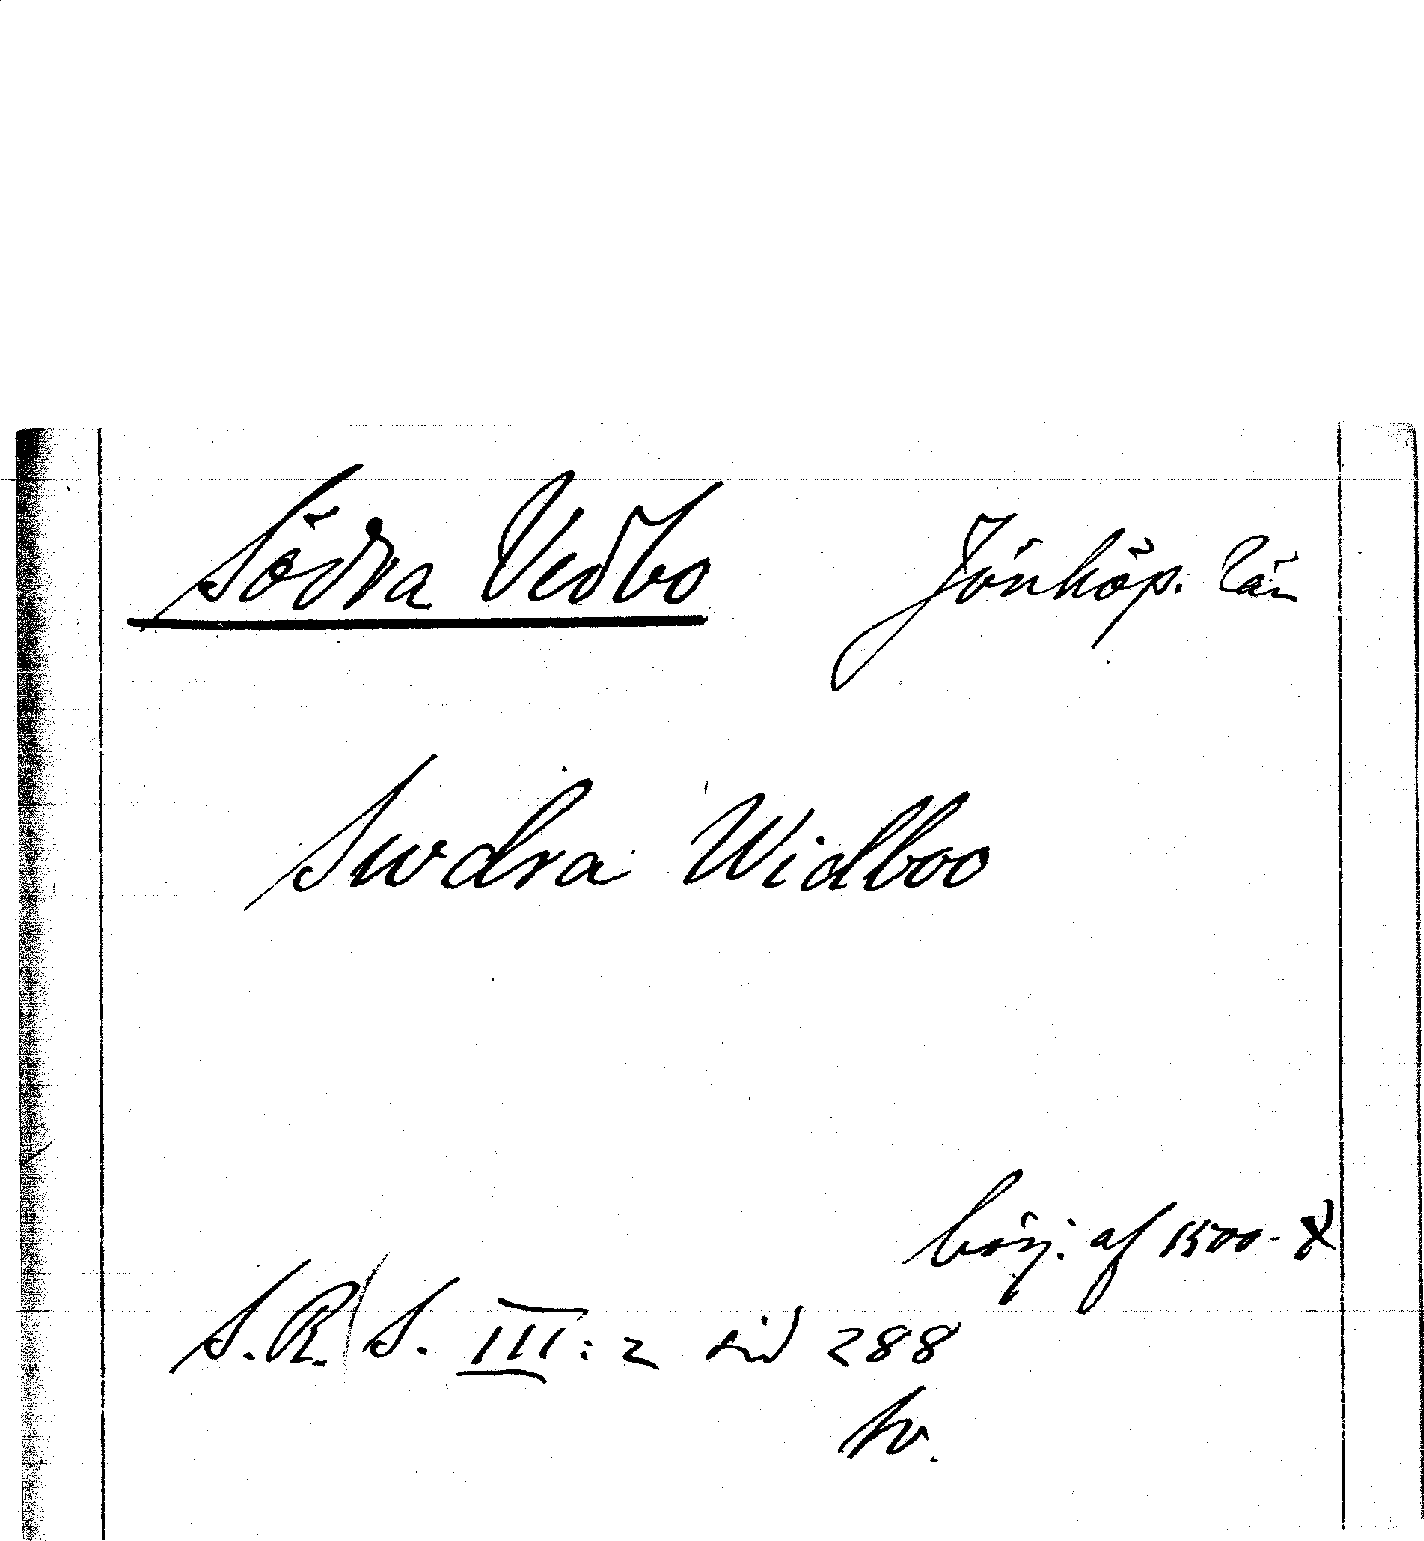 Södra Vedbo Jönköp. län
Swdra Widboo
börj. af 1500-t
S.R. S. III: 2 sid 288
sv.